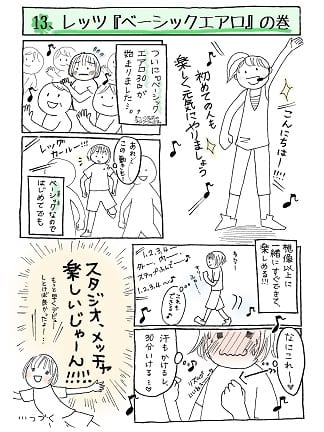 13. レッツ『ベーシックエアロ』の巻
こんにちはー!!!
初めての人も
楽しく元気にやりましょう
ついにベーシック
エアロ30分が
始まりました…
レッグ
カールー!!!
あれ?
この動きも
ベーシックなので
はじめてでも
想像以上に
一緒にすぐできて、
楽しめる!!!
1.2.3.4ー
1.2.3.4〜
これも
できる
スタジオ、メッチャ
楽しいじゃーん
!!!!!
もっと早くデビュー
しとけば良かったよー…
なにこれー♡
汗もかけるし、
30分いける…♡
…つづく